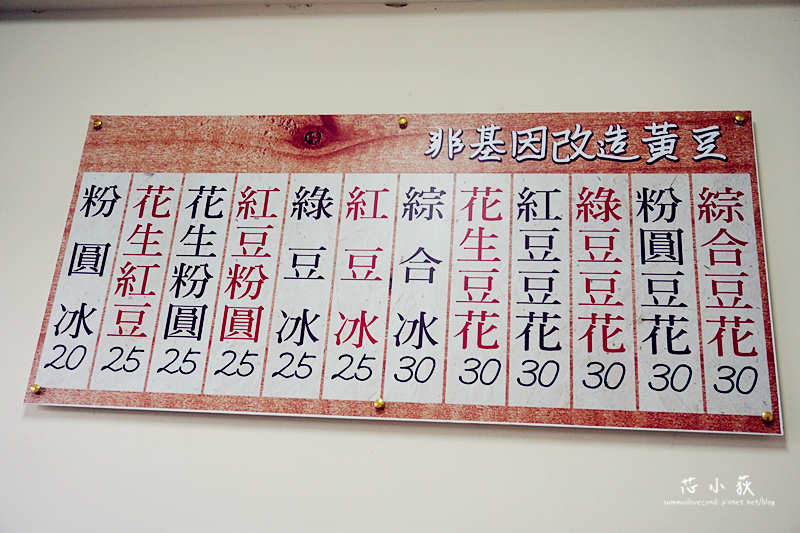 非基因改造黃豆
綜合豆花 30
粉圓豆花 30
綠豆豆花 30
紅豆豆花 30
花生豆花 30
綜合冰 30
紅豆冰 25
綠豆冰 25
紅豆粉圓 25
花生粉圓 25
花生紅豆 25
粉圓冰 20
芯小荻
summuslovecyndi.pixnet.net/blog